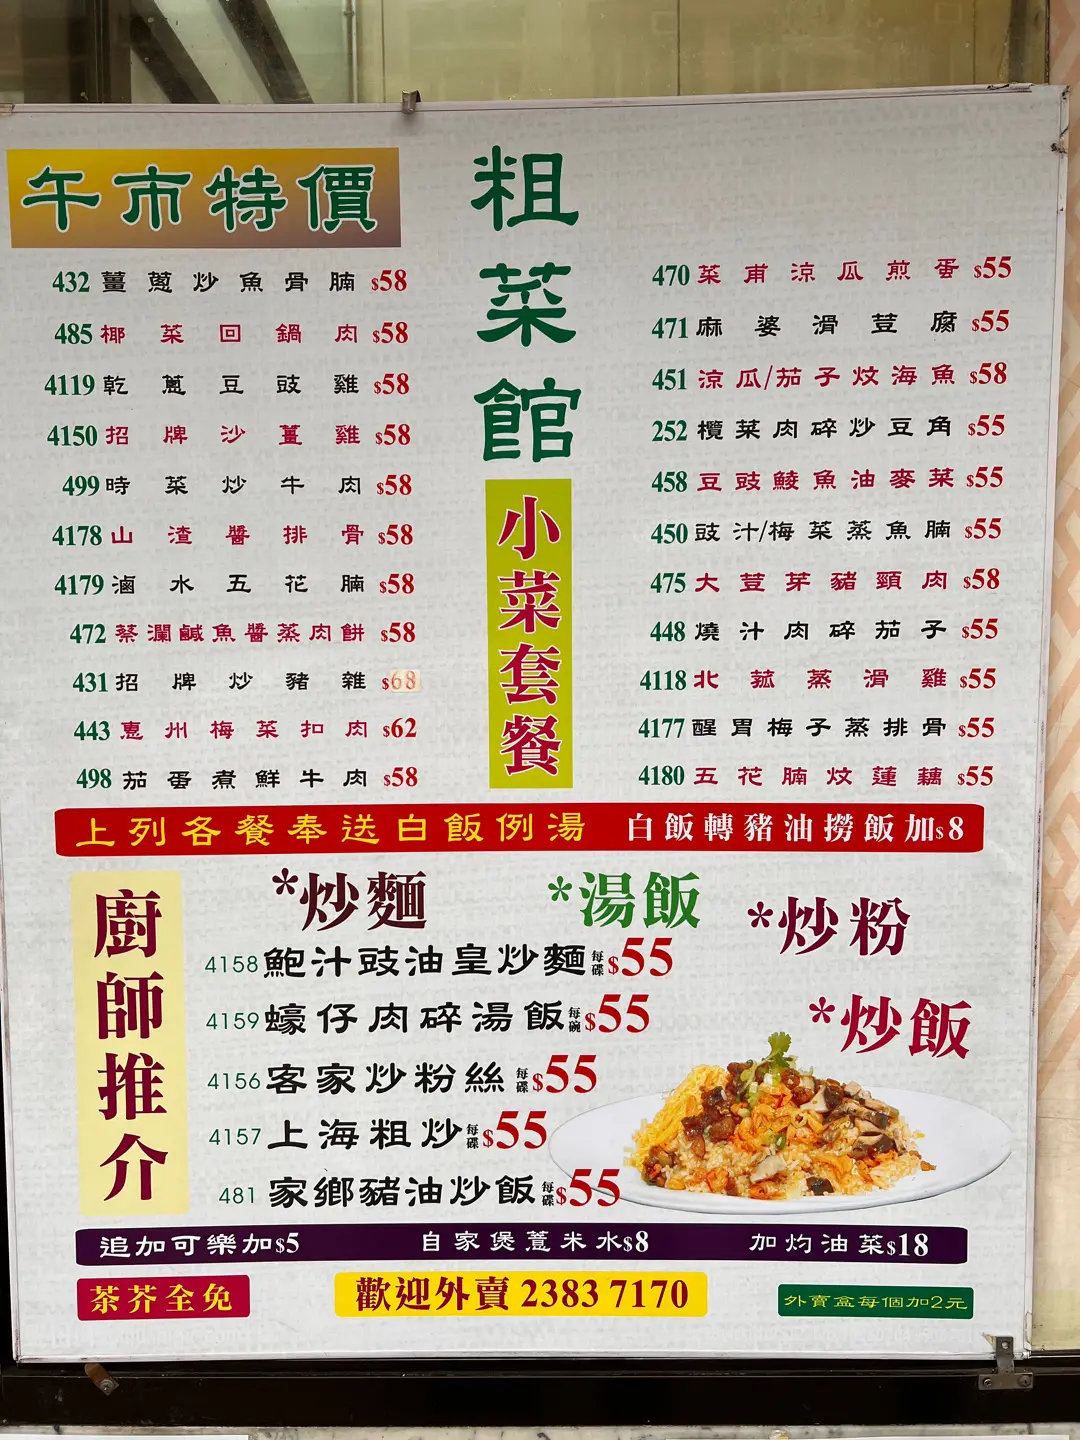 午市特價
粗菜館
小菜套餐
432 薑蔥炒魚骨腩 $58
485 椰菜回鍋肉 $58
4119 乾蔥豆豉雞 $58
4150 招牌沙薑雞 $58
499 時菜炒牛肉 $58
4178 山渣醬排骨 $58
4179 滷水五花腩 $58
472 蔡瀾鹹魚醬蒸肉餅 $58
431 招牌炒豬雜 $68
443 惠州梅菜扣肉 $62
498 茄蛋煮鮮牛肉 $58
470 菜甫涼瓜煎蛋 $55
471 麻婆滑荳腐 $55
451 涼瓜/茄子炆海魚 $58
252 欖菜肉碎炒豆角 $55
458 豆豉鯪魚油麥菜 $55
450 豉汁/梅菜蒸魚腩 $55
475 大荳芽豬頸肉 $58
448 燒汁肉碎茄子 $55
4118 北菰蒸滑雞 $55
4177 醒胃梅子蒸排骨 $55
4180 五花腩炆蓮藕 $55
上列各餐奉送白飯例湯 白飯轉豬油撈飯加$8
廚師推介
*炒麵
*湯飯
*炒粉
*炒飯
4158 鮑汁豉油皇炒麵 每碟 $55
4159 蠔仔肉碎湯飯 每碗 $55
4156 客家炒粉絲 每碟 $55
4157 上海粗炒 每碟 $55
481 家鄉豬油炒飯 每碟 $55
追加可樂加$5 自家煲薏米水$8 加灼油菜$18
茶芥全免
歡迎外賣 2383 7170
外賣盒每個加2元